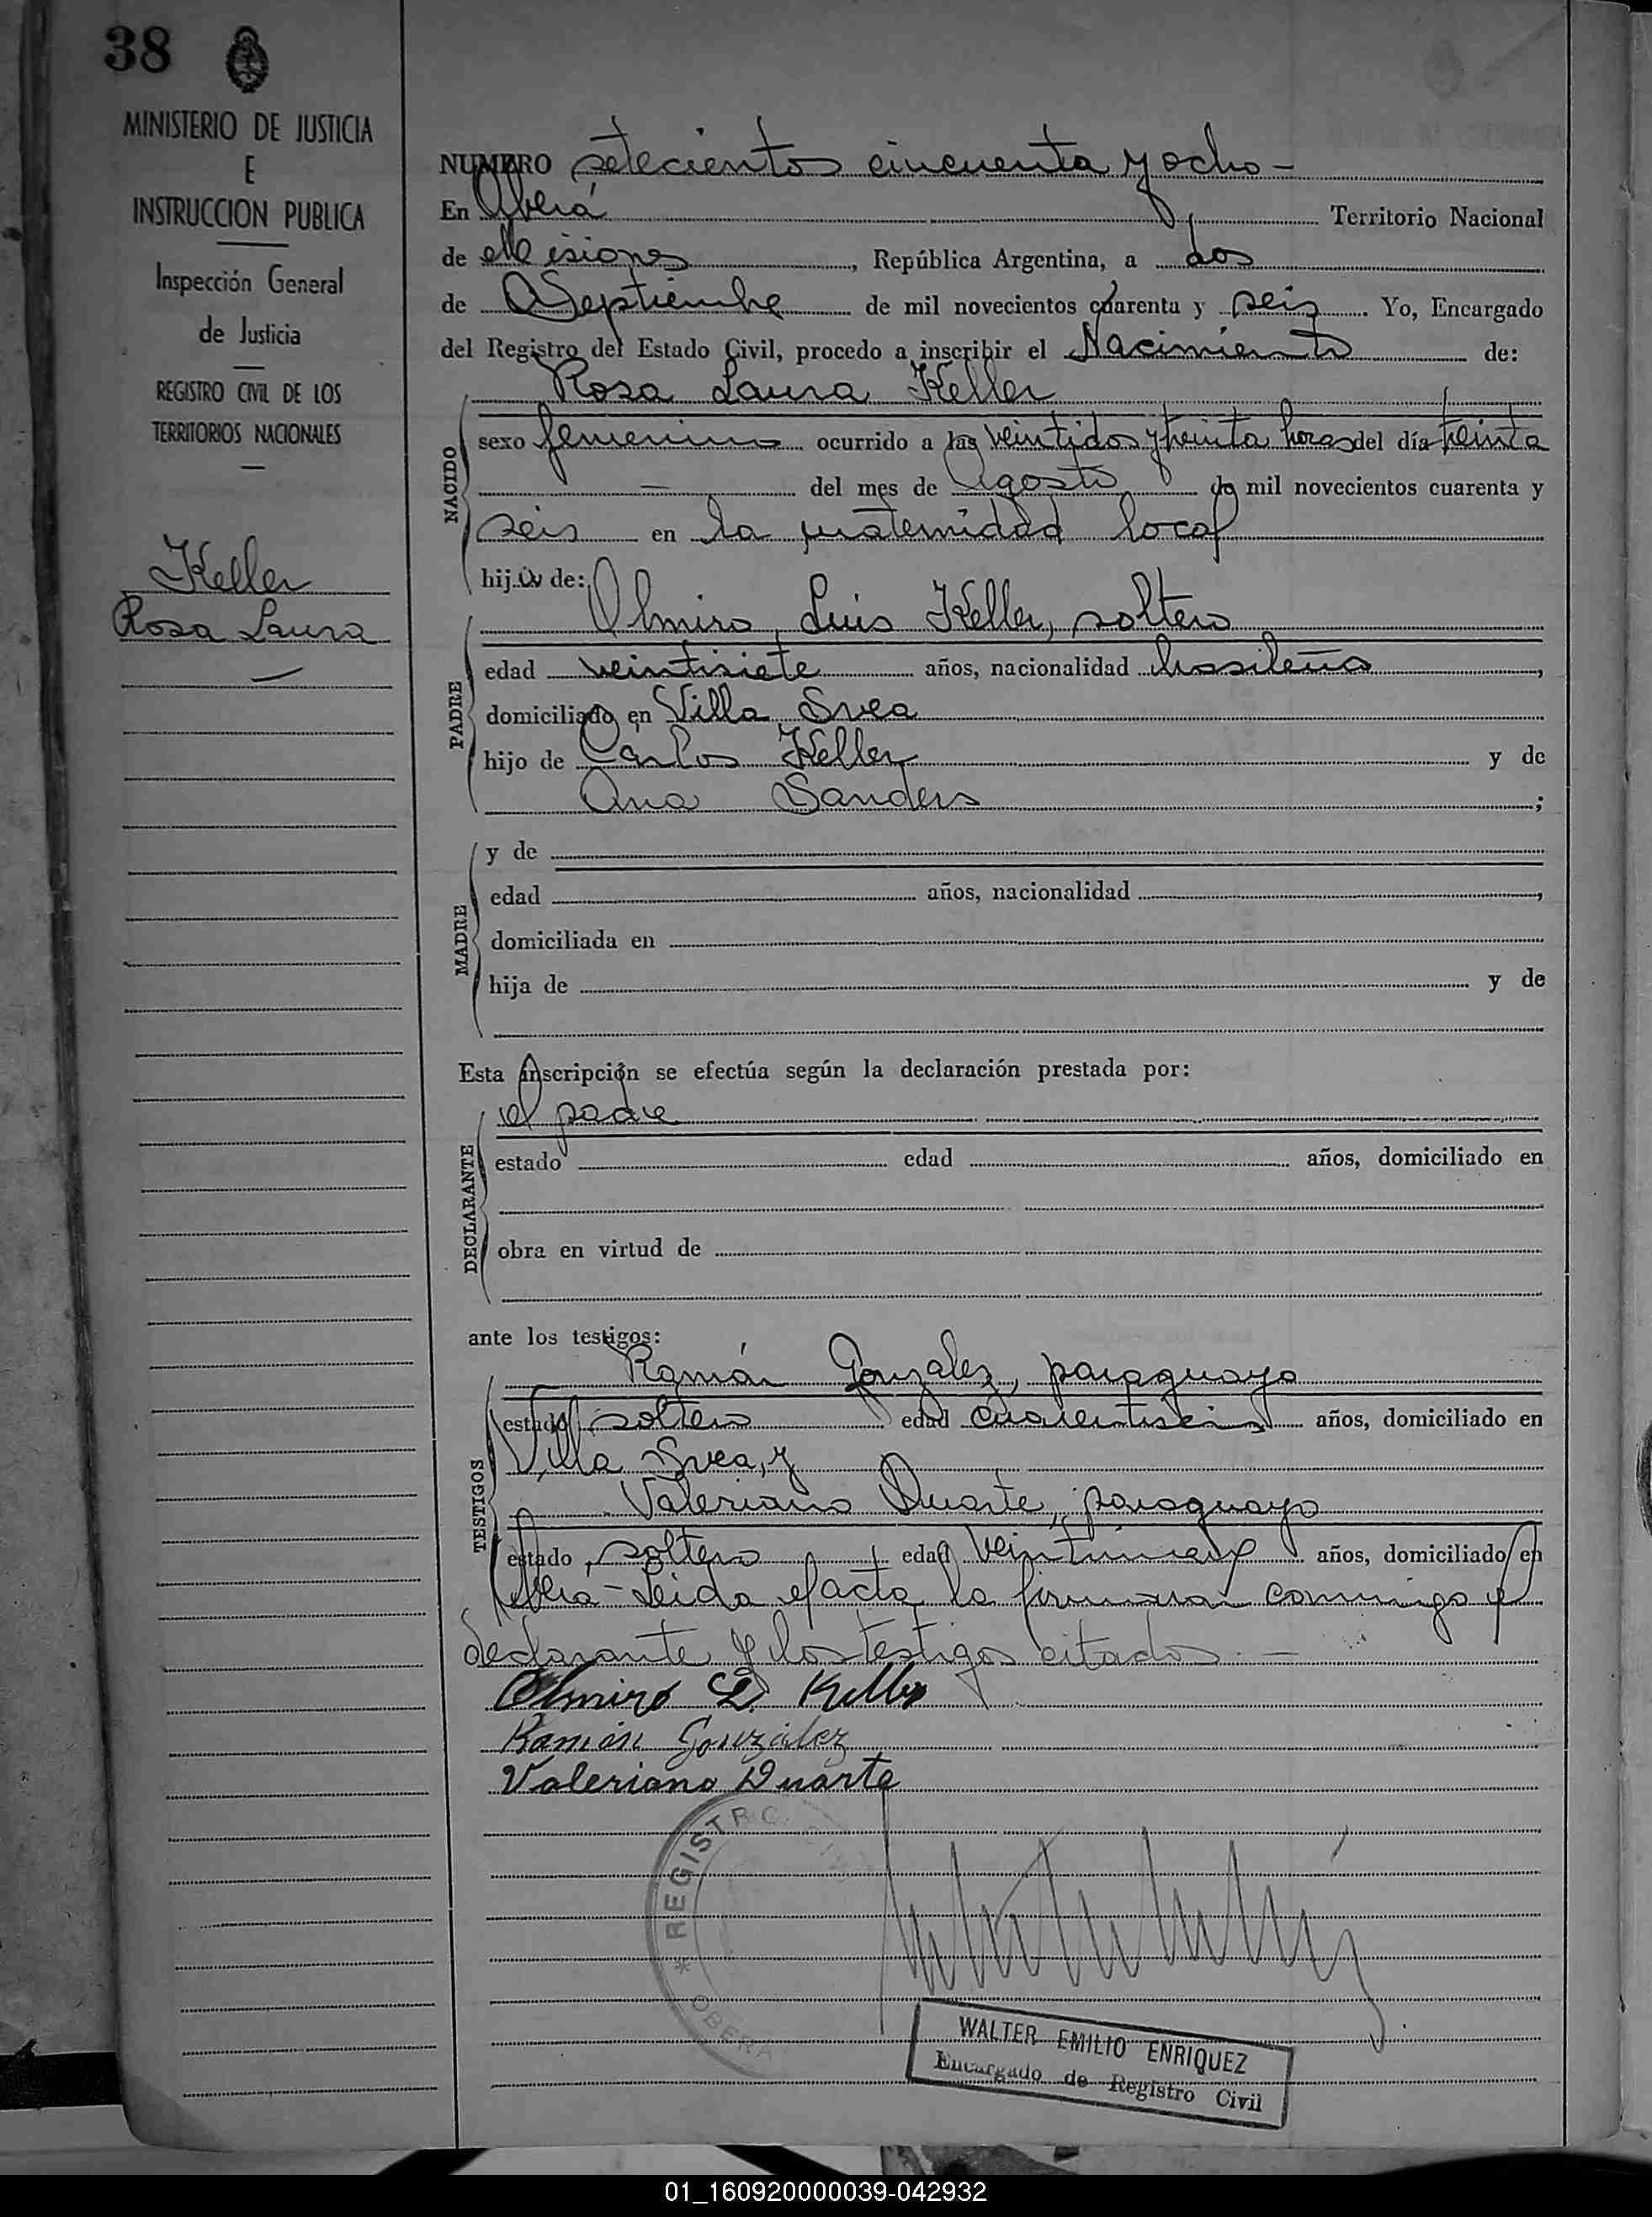 38
MINISTERIO DE JUSTICIA
E
INSTRUCCION PUBLICA
Inspección General
de Justicia
REGISTRO CIVIL DE LOS
TERRITORIOS NACIONALES
Keller
Rosa Laura
NUMERO setecientos cincuenta y ocho -
En Oberá Territorio Nacional
de Misiones, República Argentina, a dos
de Septiembre de mil novecientos cuarenta y seis. Yo, Encargado
del Registro del Estado Civil, procedo a inscribir el Nacimiento de:
Rosa Laura Keller
NACIDO
sexo femenino ocurrido a las veintidos y treinta horas del día treinta
— del mes de Agosto de mil novecientos cuarenta y
seis en la maternidad local
hija de:
Olmiro Luis Keller, soltero
PADRE
edad veintisiete años, nacionalidad brasileña,
domiciliado en Villa Svea
hijo de Carlos Keller y de
Ana Sanders;
MADRE
y de
edad años, nacionalidad,
domiciliada en
hija de y de
Esta inscripción se efectúa según la declaración prestada por:
el padre
DECLARANTE
estado edad años, domiciliado en
obra en virtud de
ante los testigos:
Ramón Gonzalez, paraguayo
TESTIGOS
estado soltero edad cuarentiseis años, domiciliado en
Villa Svea, y
Valeriano Duarte, paraguayo
estado soltero edad años, domiciliado en
Oberá - Leida el acta la firmaran conmigo el
declarante y los testigos citados. —
Olmiro L. Keller
Ramón González
Valeriano Duarte
* REGISTRO CIVIL
OBERA
WALTER EMILIO ENRIQUEZ
Encargado de Registro Civil
01_160920000039-042932